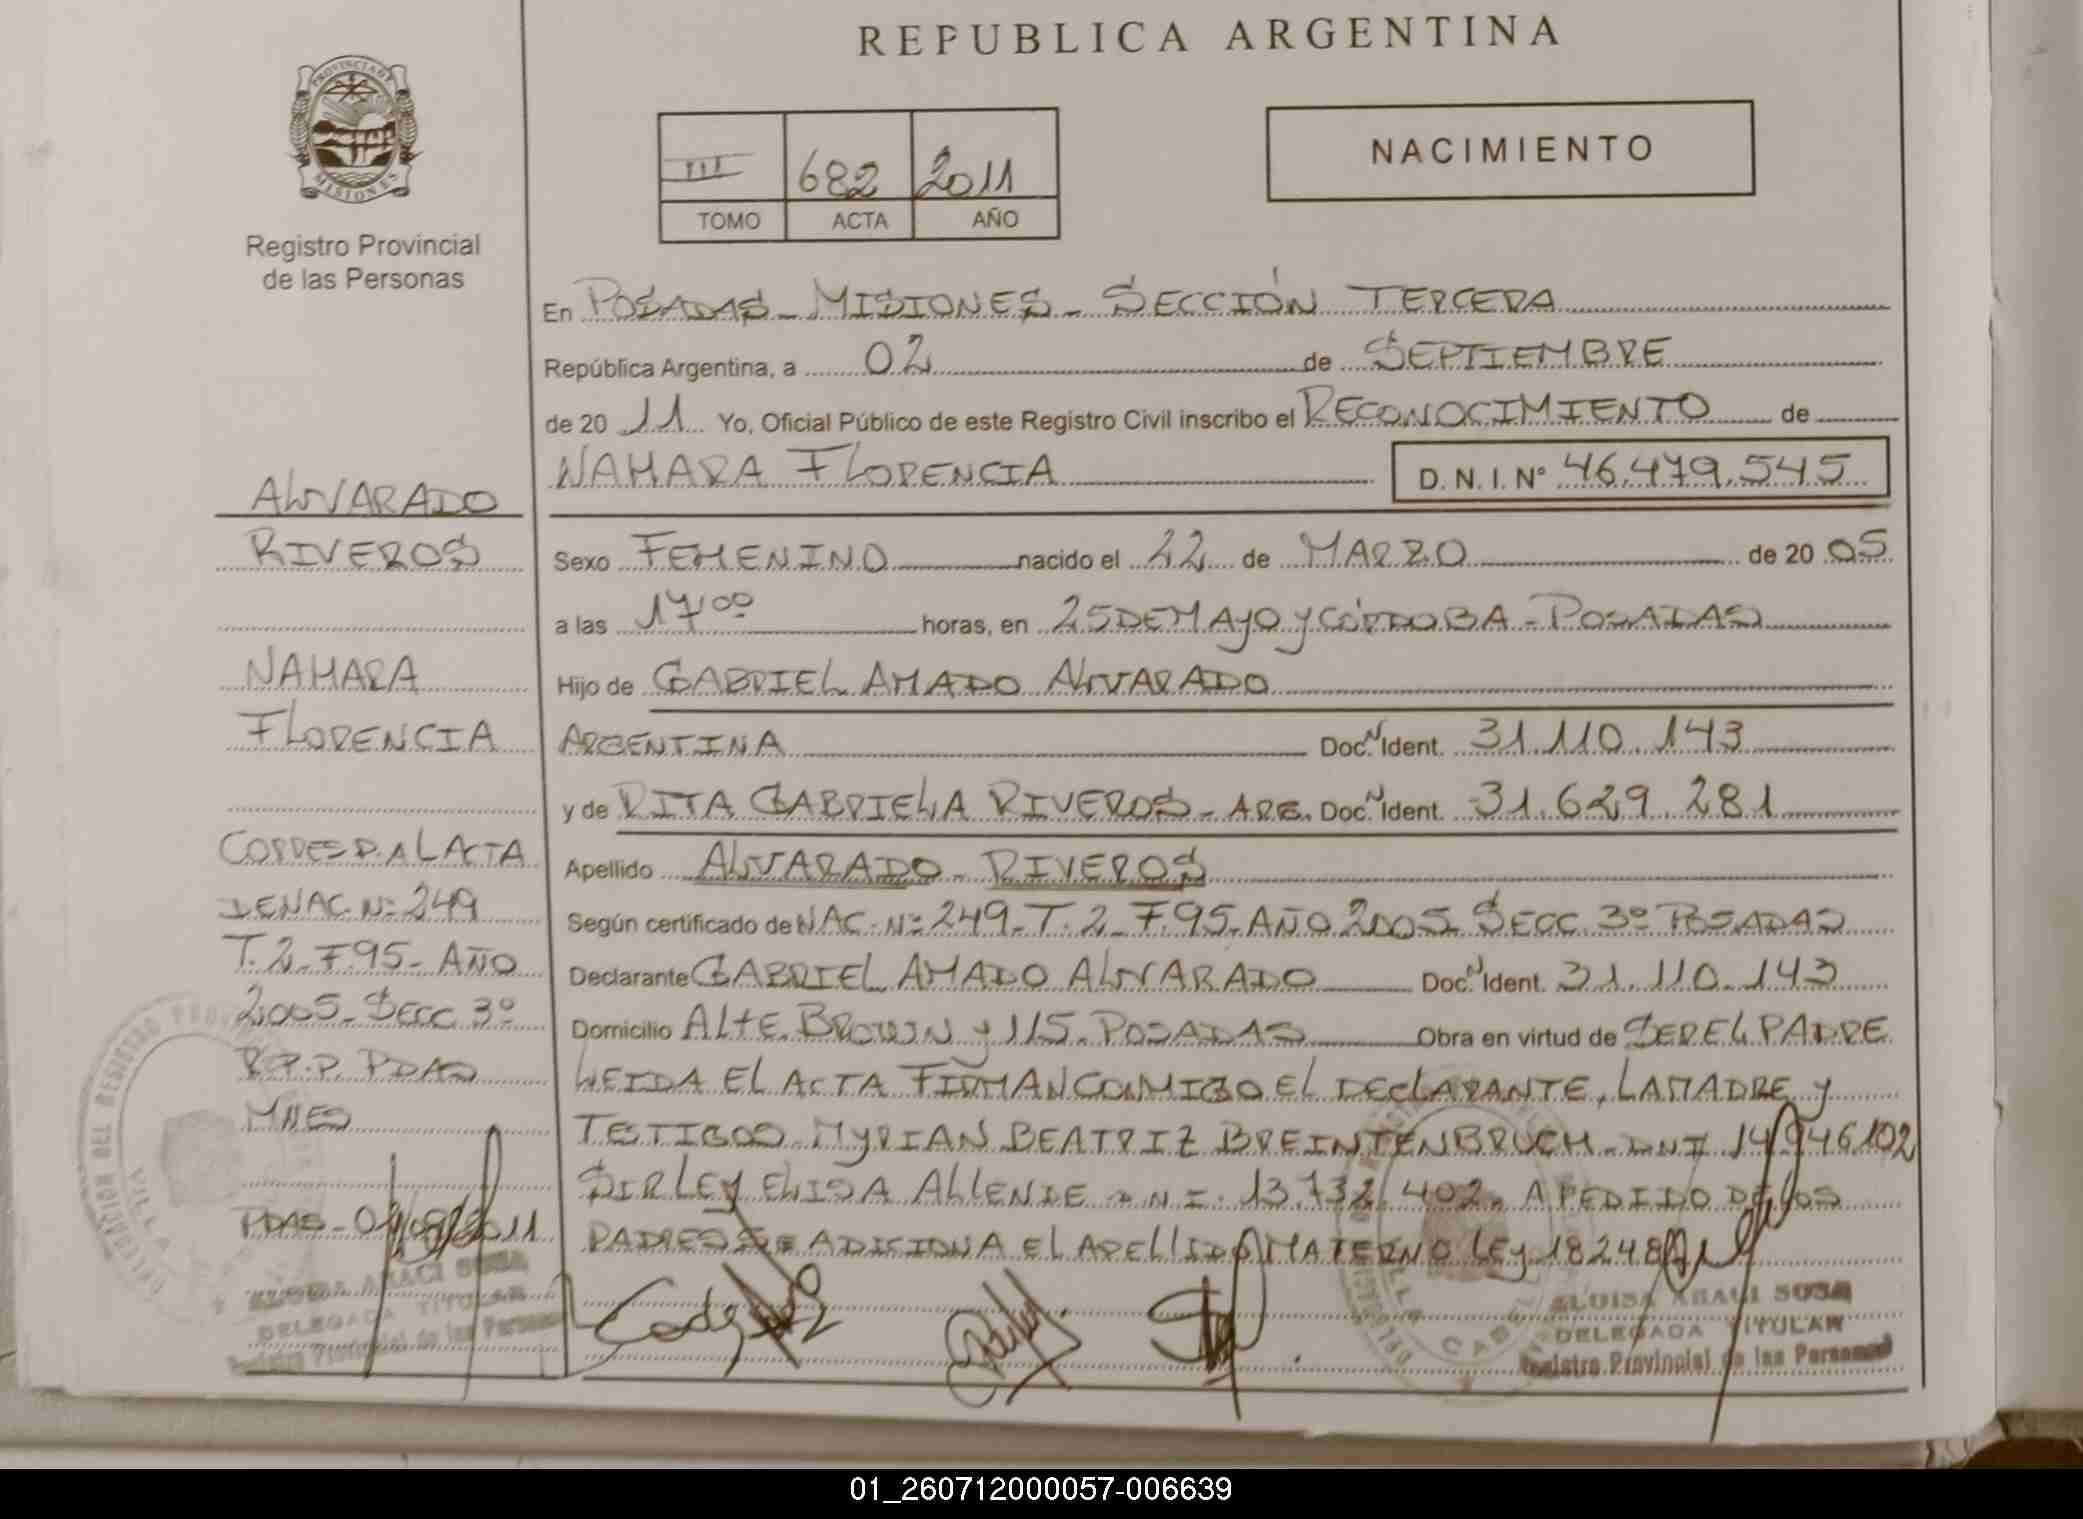 REPUBLICA ARGENTINA
PROVINCIA DE
MISIONES
Registro Provincial
de las Personas
III 682 2011
TOMO ACTA AÑO
NACIMIENTO
En POSADAS - MISIONES - SECCIÓN TERCERA
República Argentina, a 02 de SEPTIEMBRE
de 20 11 Yo, Oficial Público de este Registro Civil inscribo el RECONOCIMIENTO de
NAHARA FLORENCIA D. N. I. Nº 46.479.545
Sexo FEMENINO nacido el 22 de MARZO de 20 05
a las 17 00 horas, en 25 DE MAYO Y CÓRDOBA - POSADAS
Hijo de GABRIEL AMADO ALVARADO
ARGENTINA Doc. N Ident. 31.110.143
y de RITA GABRIELA RIVEROS - ARG. Doc. N Ident. 31.629.281
Apellido ALVARADO - RIVEROS
Según certificado de NAC. Nº 249 - T. 2 - F. 95 - AÑO 2005 - SECC. 3º POSADAS
Declarante GABRIEL AMADO ALVARADO Doc. N Ident. 31.110.143
Domicilio ALTE. BROWN y 115 - POSADAS Obra en virtud de SER EL PADRE
LEIDA EL ACTA FIRMAN CONMIGO EL DECLARANTE, LA MADRE y
TESTIGOS MYRIAN BEATRIZ BREINTENBRUCH - DNI 14.946.102
SIRLEY ELISA ALLENDE D.N.I. 13.732.402. A PEDIDO DE LOS
PADRES SE ADICIONA EL APELLIDO MATERNO LEY 18248
ALVARADO
RIVEROS
NAHARA
FLORENCIA
CORRESP. A L ACTA
DE NAC. Nº 249
T. 2 - F 95 - AÑO
2005 - SECC 3º
R.P.P. PDAS
MNES
PDAS - 2011
ELOISA ARACI SOSA
DELEGADA TITULAR
Registro Provincial de las Personas
ELOISA ARACI SOSA
DELEGADA TITULAR
Registro Provincial de las Personas
01_260712000057-006639